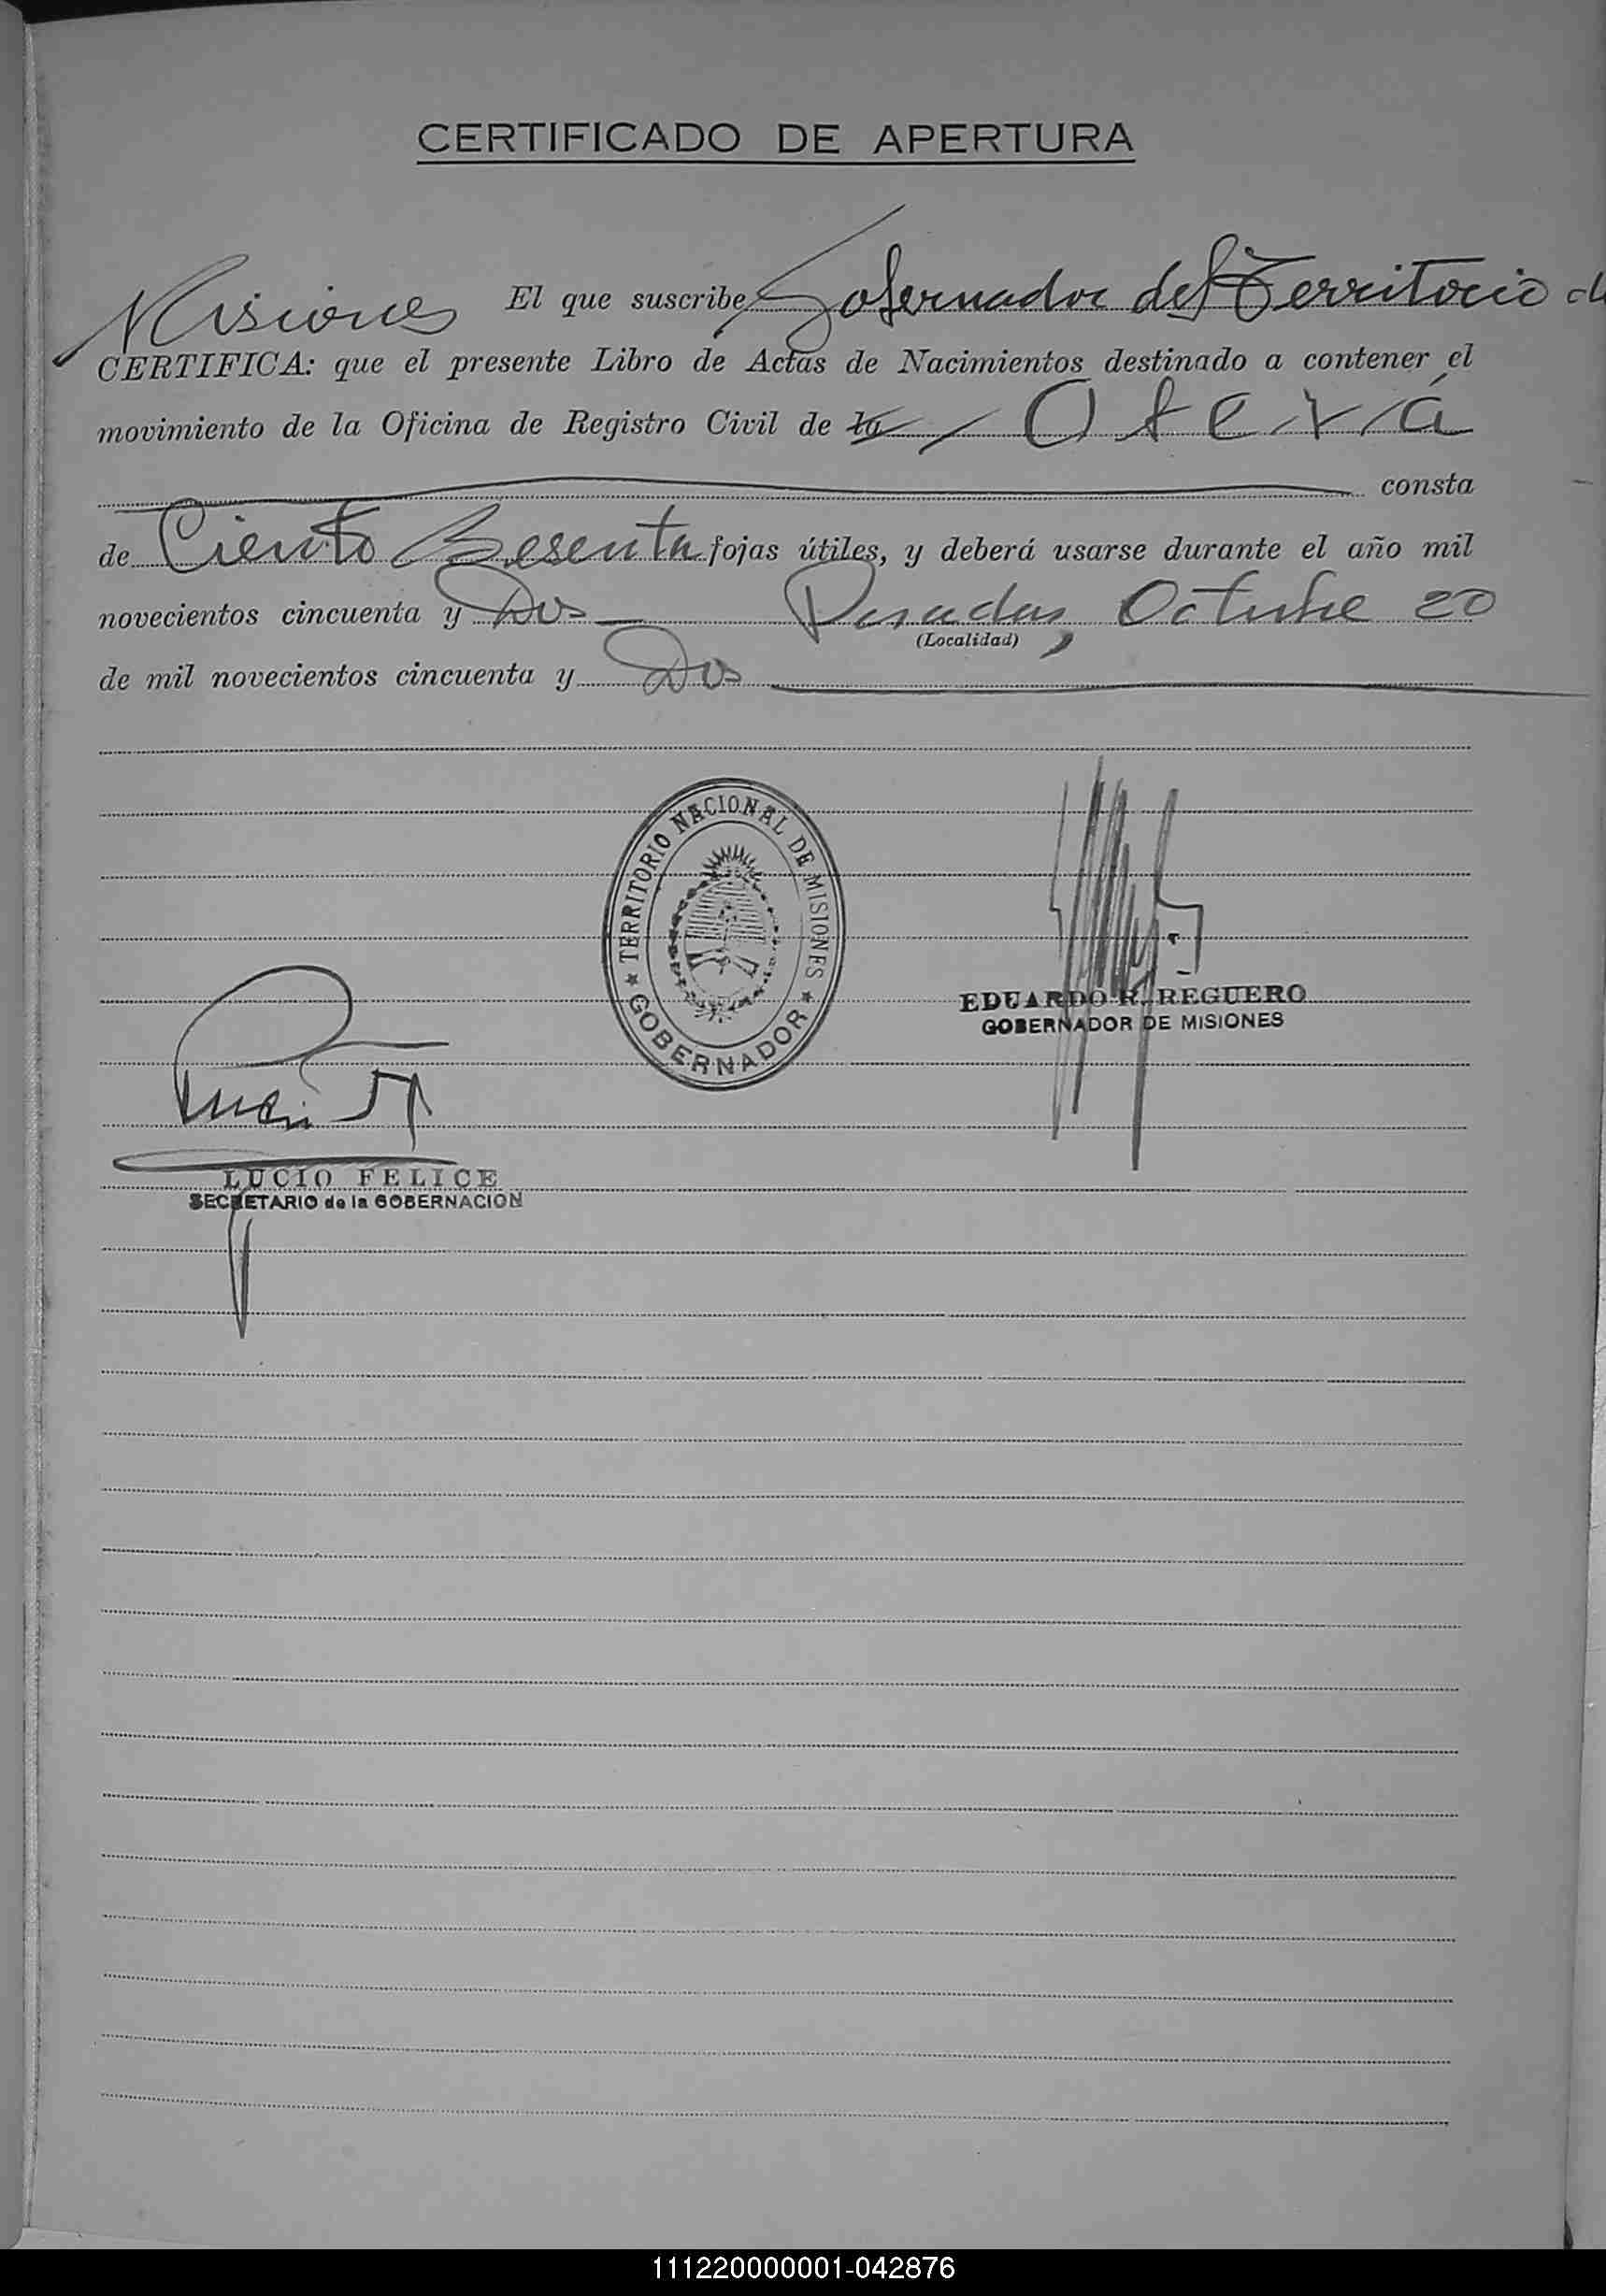 CERTIFICADO DE APERTURA
El que suscribe Gobernador del Territorio de
Misiones
CERTIFICA: que el presente Libro de Actas de Nacimientos destinado a contener el
movimiento de la Oficina de Registro Civil de la Oberá
consta
de Ciento Sesenta fojas útiles, y deberá usarse durante el año mil
novecientos cincuenta y Dos Posadas, Octubre 20
(Localidad)
de mil novecientos cincuenta y Dos
TERRITORIO NACIONAL DE MISIONES
GOBERNADOR
EDUARDO R. REGUERO
GOBERNADOR DE MISIONES
LUCIO FELICE
SECRETARIO de la GOBERNACION
111220000001-042876